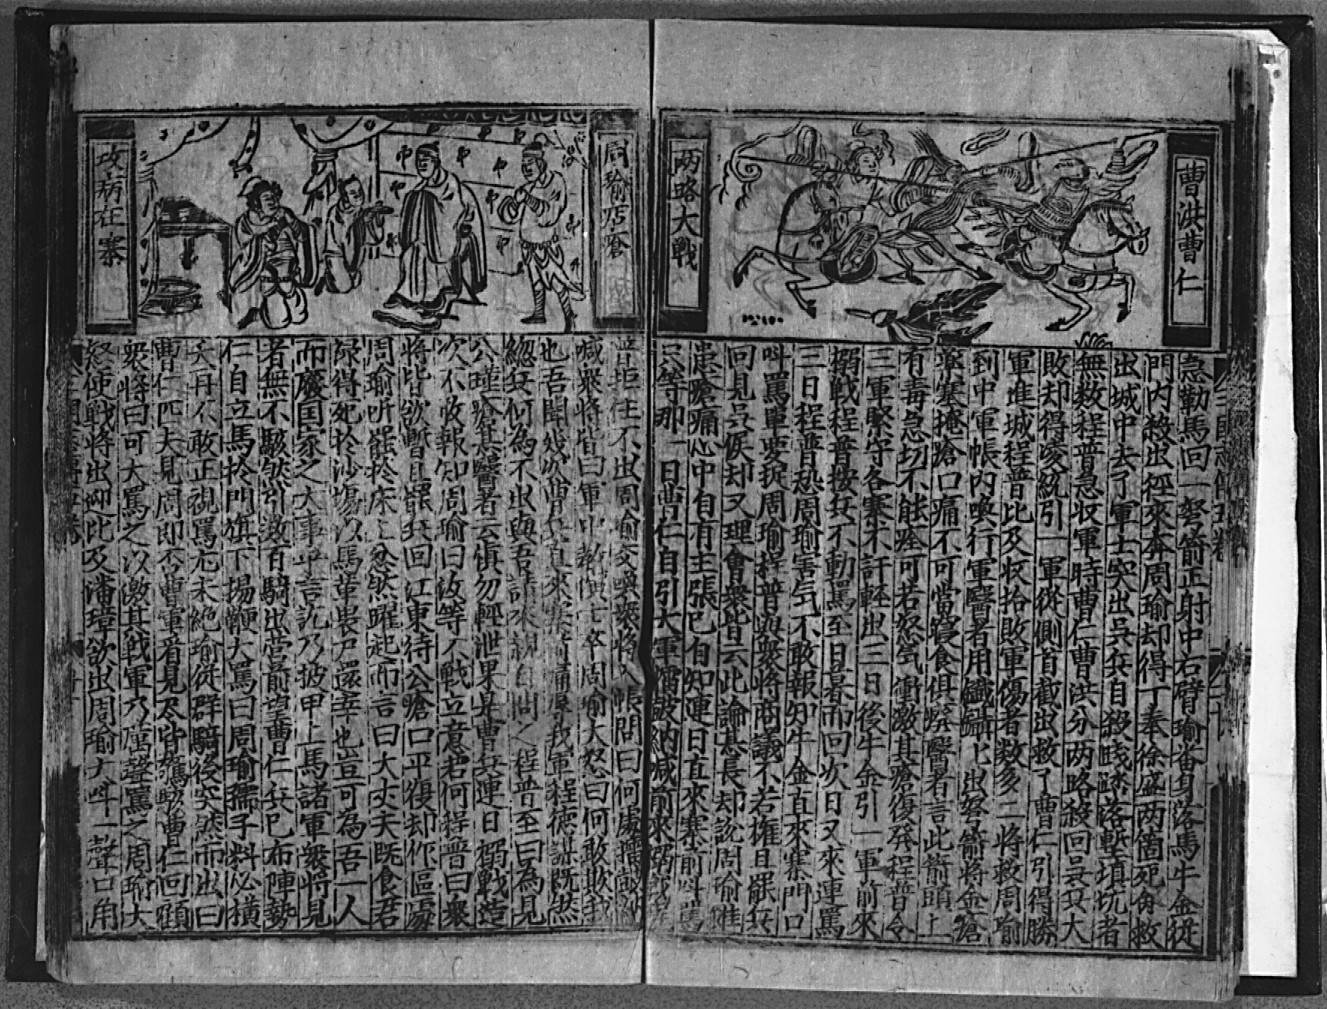 曹洪曹仁
两路大戰
急勒馬回一弩箭正射中右臂瑜畨身落馬牛金従
門内殺出徑來奔周瑜却得丁奉徐盛两箇死命救
出城中去了軍士突出吳兵自殺践踏落塹填坑者
無数程普急收軍時曹仁曹洪分两路殺回吳兵大
敗却得凌統引一軍從側首截出救了曹仁引得勝
軍進城程普比及収拾敗軍傷者数多二將救周瑜
到中軍帳内喚行軍醫者用鐵鉗
出弩箭將金瘡
藥塞掩瘡口痛不可當寝食俱
醫者言此箭頭上
有毒急切不能痊可若怒氣衝激其瘡復発程普令
三軍緊守各寨不許輕出三日後牛金引一軍前來
搦戰程普按兵不動罵至日暮而回次日又來連罵
三日程普恐周瑜害气不敢報知牛金直來寨門口
呌罵單要捉周瑜程普與衆將商議不若權且罷兵
回見吳侯却又理會衆皆云此論甚長却説周瑜雖
患瘡痛心中自有主張已自知連日直來寨前呌罵
等
那一日曹仁自引大軍擂皷納喊前來搦戰
周瑜
瘡
攻病在寨
普拒住不出周瑜交喚衆將入帳問曰何處擂皷呐
喊衆將皆曰軍中教演士卒周瑜大怒曰何敢欺我
也吾聞
曹兵直來寨前
我軍程德謀既然
總兵何為不出與吾請來親自問之程普至曰為見
公瑾瘡甚醫者云慎勿輕泄果是曹兵連日搦戰造
次不敢報知周瑜曰汝等不戰立意若何程普曰衆
將皆欲暫且罷兵回江東待公瘡口平復却作區處
周瑜听罷扵床上忿然躍起而言曰大丈夫既食君
禄得死扵沙塲以馬革畏尸還幸也豈可為吾一人
而廢国家之大事乎言訖乃披甲上馬諸軍衆將見
者無不駭然引数百騎出营前望曹仁兵已布陣勢
仁自立馬扵門旗下揚鞭大罵曰周瑜孺子料必横
夭再不敢正視罵尤未絶瑜従群騎後突然而出曰
曹仁匹夫見周郎否曹軍看見尽皆驚駭曹仁回顧
衆將曰可大罵之以激其戰軍乃厲聲罵之周瑜大
怒使戰將出迎比及潘璋欲出周瑜大呌一聲口角